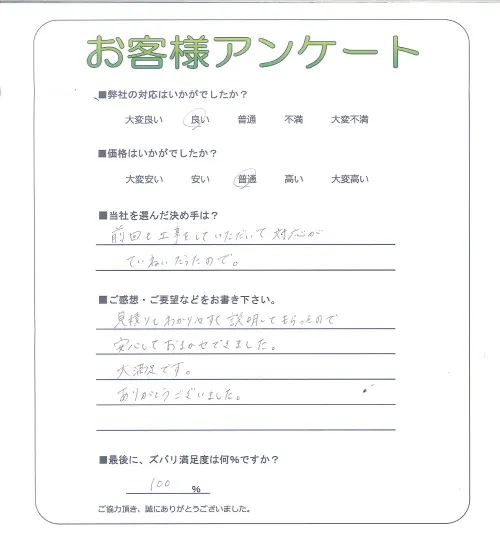 お客様アンケート
■弊社の対応はいかがでしたか？
大変良い 良い 普通 不満 大変不満
■価格はいかがでしたか？
大変安い 安い 普通 高い 大変高い
■当社を選んだ決め手は？
前回も工事をしていただいて 対応が
ていねいだったので。
■ご感想・ご要望などをお書き下さい。
見積りもわかりやすく説明してもらったので
安心しておまかせできました。
大満足です。
ありがとうございました。
■最後に、ズバリ満足度は何%ですか？
100 %
ご協力頂き、誠にありがとうございました。